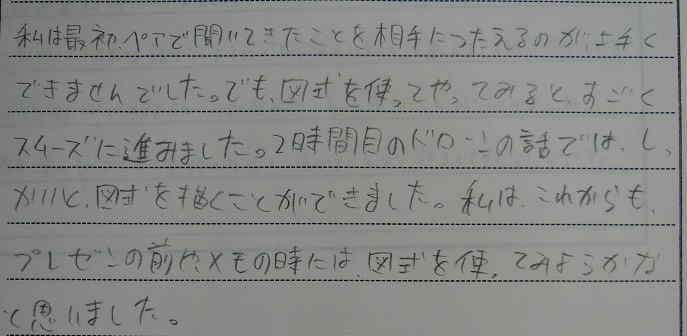 私は最初、ペアで聞いてきたことを相手につたえるのが上手く
できませんでした。でも、図式を使ってやってみると、すごく
スムーズに進みました。2時間目のドローンの話では、しっ
かりと、図式を描くことができました。私は、これからも、
プレゼンの前や、メモの時には、図式を使ってみようかな
と思いました。